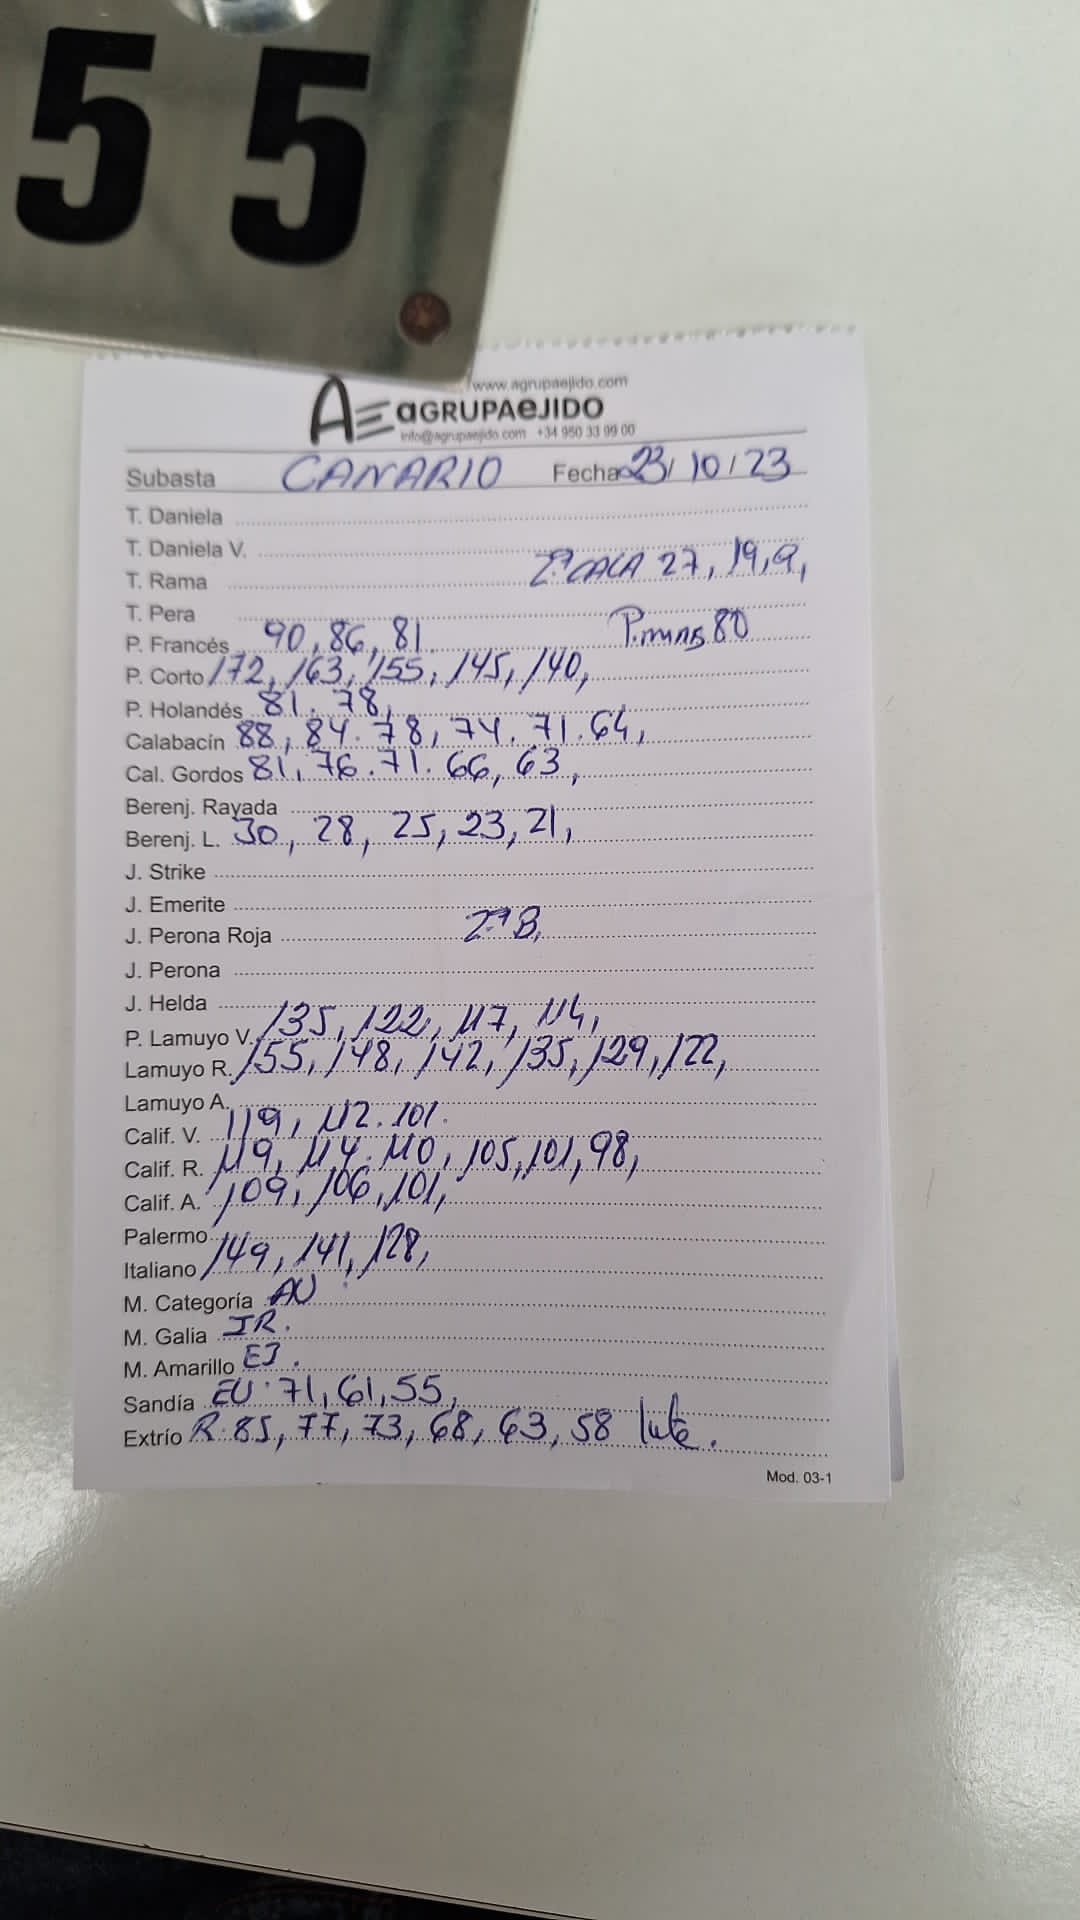 55
www.agrupaejido.com
AE aGRUPAeJIDO
info@agrupaejido.com +34 950 33 99 00
Subasta CANARIO Fecha 23/10/23
T. Daniela
T. Daniela V.
T. Rama 2ª CALA 27, 19, 9,
T. Pera
P. Francés 90, 86, 81. P. mins 80
P. Corto 172, 163, 155, 145, 140,
P. Holandés 81. 78,
Calabacín 88, 84. 78, 74. 71. 64,
Cal. Gordos 81, 76. 71. 66, 63,
Berenj. Rayada
Berenj. L. 30, 28, 25, 23, 21,
J. Strike
J. Emerite
J. Perona Roja 2ª B,
J. Perona
J. Helda
P. Lamuyo V. 135, 122, 117, 114,
Lamuyo R. 155, 148, 142, 135, 129, 122,
Lamuyo A.
Calif. V. 119, 112. 101.
Calif. R. 119, 114. 110, 105, 101, 98,
Calif. A. 109, 106, 101,
Palermo
Italiano 149, 141, 128,
M. Categoría AN
M. Galia IR.
M. Amarillo EJ.
Sandía EU. 71, 61, 55,
Extrío R. 85, 77, 73, 68, 63, 58
Mod. 03-1